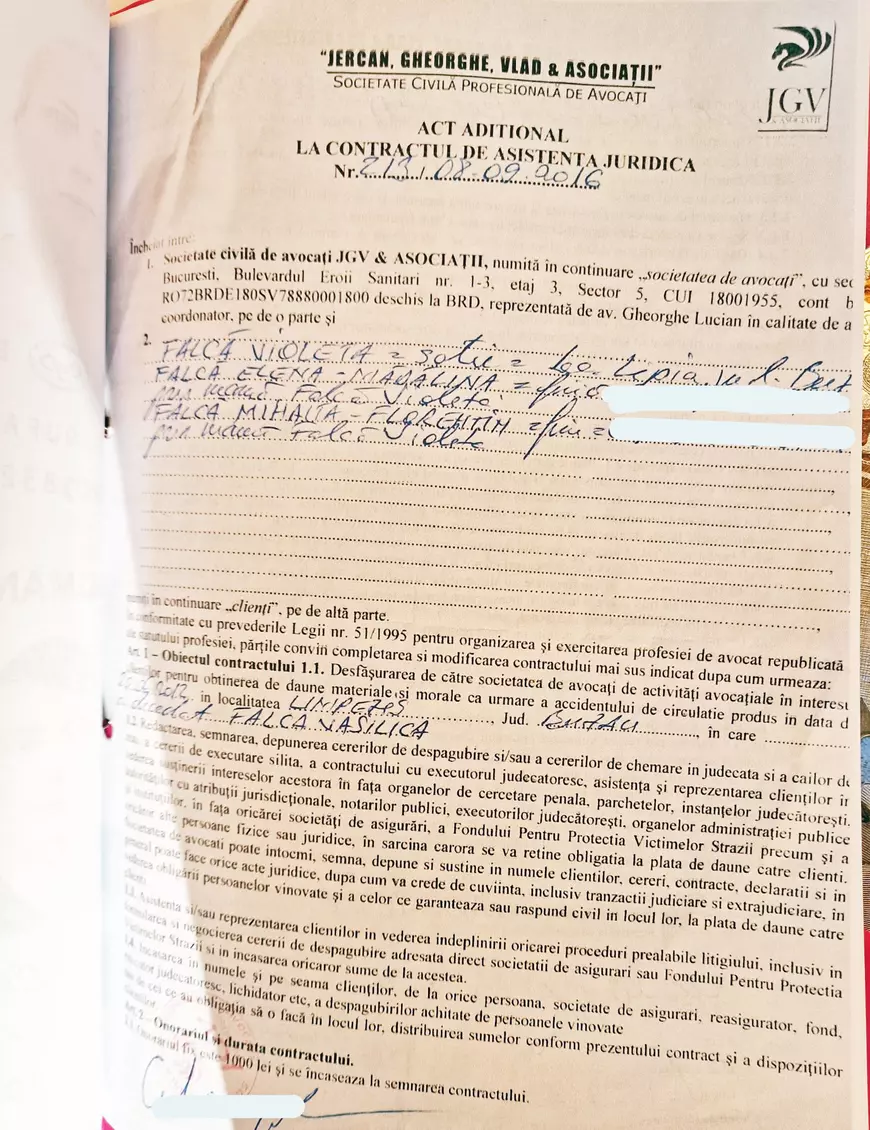 "JERCAN, GHEORGHE, VLAD & ASOCIAȚII"
SOCIETATE CIVILĂ PROFESIONALĂ DE AVOCAȚI
JGV
& ASOCIAȚII
ACT ADITIONAL
LA CONTRACTUL DE ASISTENȚA JURIDICA
Nr. 213 / 08.09.2016
Încheiat între:
1. Societate civilă de avocați JGV & ASOCIAȚII, numită în continuare „societatea de avocați”, cu sec
Bucuresti, Bulevardul Eroii Sanitari nr. 1-3, etaj 3, Sector 5, CUI 18001955, cont b
RO72BRDE180SV78880001800 deschis la BRD, reprezentată de av. Gheorghe Lucian în calitate de a
coordonator, pe de o parte și
2.
FALCĂ VIOLETA = soție = loc. Lipia, jud.
FALCĂ ELENA-MĂDĂLINA = fiică
prin mamă Falcă Violeta
FALCĂ MIHAITA-FLORENTIN = fiu =
prin mamă Falcă Violeta
numiți în continuare „clienți”, pe de altă parte.
In conformitate cu prevederile Legii nr. 51/1995 pentru organizarea și exercitarea profesiei de avocat republicată
ale statutului profesiei, părțile convin completarea si modificarea contractului mai sus indicat dupa cum urmeaza:
Art. 1 – Obiectul contractului 1.1. Desfășurarea de către societatea de avocați de activități avocațiale în interest
clienților pentru obtinerea de daune materiale și morale ca urmare a accidentului de circulatie produs in data d
in localitatea LIMPEZIS, Jud. BUZAU, în care
a decedat FALCA VASILICA
1.2. Redactarea, semnarea, depunerea cererilor de despagubire si/sau a cererilor de chemare in judecata si a cailor de
a cererii de executare silita, a contractului cu executorul judecatoresc, asistența și reprezentarea clienților in
vederea susținerii intereselor acestora în fața organelor de cercetare penala, parchetelor, instanțelor judecătorești,
autorităților cu atribuții jurisdicționale, notarilor publici, executorilor judecătorești, organelor administrației publice
și instituțiilor, în fața oricărei societăți de asigurări, a Fondului Pentru Protectia Victimelor Strazii precum și a
oricăror alte persoane fizice sau juridice, în sarcina carora se va retine obligatia la plata de daune catre clienti.
Societatea de avocati poate intocmi, semna, depune si sustine in numele clientilor, cereri, contracte, declaratii si in
general poate face orice acte juridice, dupa cum va crede de cuviinta, inclusiv tranzactii judiciare si extrajudiciare, în
vederea obligării persoanelor vinovate și a celor ce garanteaza sau raspund civil in locul lor, la plata de daune catre
clienti.
1.3. Asistenta si/sau reprezentarea clientilor in vederea indeplinirii oricarei proceduri prealabile litigiului, inclusiv in
formularea si negocierea cererii de despagubire adresata direct societatii de asigurari sau Fondului Pentru Protectia
Victimelor Strazii si in incasarea oricaror sume de la acestea.
1.4. Incasarea in numele și pe seama clienților, de la orice persoana, societate de asigurari, reasigurator, fond,
executor judecatoresc, lichidator etc, a despagubirilor achitate de persoanele vinovate
sau de cei ce au obligația să o facă în locul lor, distribuirea sumelor conform prezentului contract și a dispozițiilor
Art. 2 – Onorariul și durata contractului.
2.1. Onorariul fix este 1000 lei și se încaseaza la semnarea contractului.